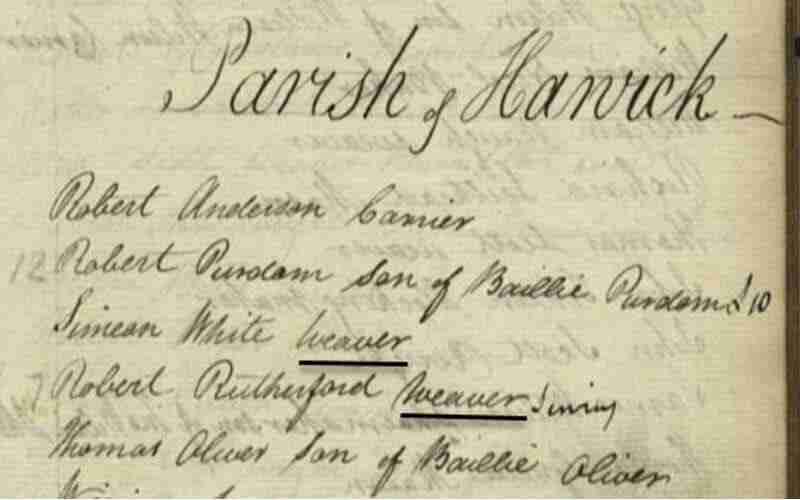 Parish of Hawick
Robert Anderson Carrier
12 Robert Purdom Son of Baillie Purdom £10
Simeon White Weaver
7 Robert Rutherford Weaver
Thomas Oliver Son of Baillie Oliver